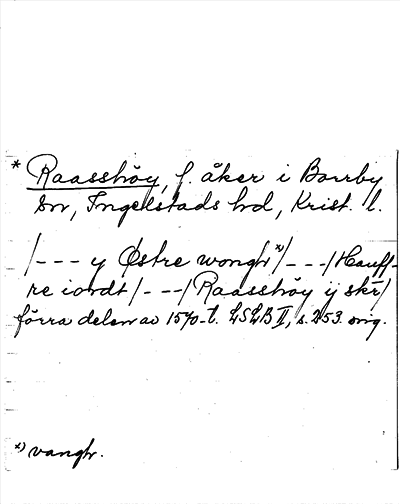 * Raasshöy, f. åker i Borrby
sn, Ingelstads hd, Krist. l.
/--- y Østre wongh*)/---/Hauff-
re iordt/---/Raasshöy ij skr/
förra delen av 1570-t. LSLB II, s. 253. orig.
*) vangh.